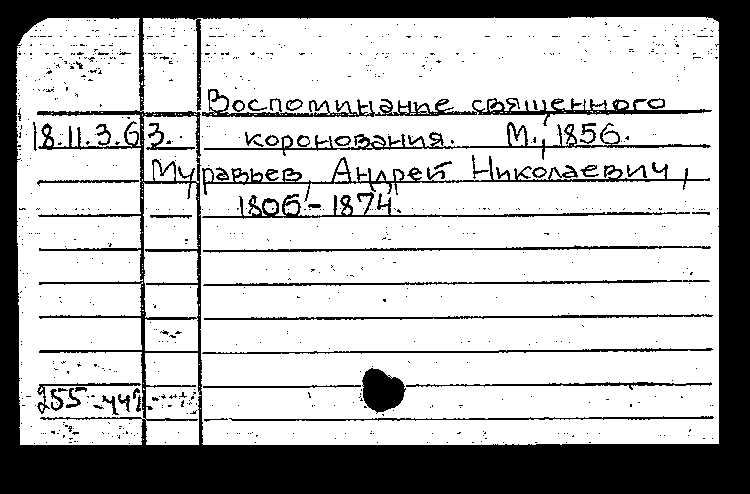 Воспоминание священного
18.11.3.63. коронования. М., 1856.
Муравьев, Андрей Николаевич,
1806-1874.
255-447.